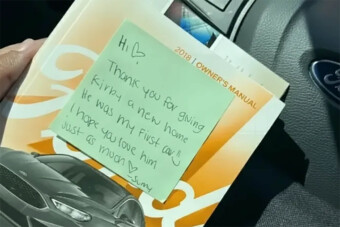 2018 | OWNER'S MANUAL
Hi ♡
Thank you for giving
Kirby a new home
He was my first car,
I hope you love him
just as much ♡
Ford